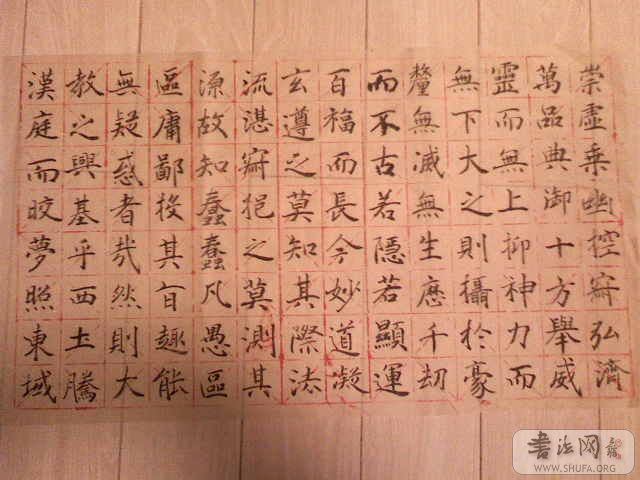 崇虛乘幽控寂弘濟
萬品典御十方舉威
靈而無上抑神力而
無下大之則攝於豪
釐無滅無生歷千劫
而不古若隱若顯運
百福而長今妙道凝
玄遵之莫知其際法
流湛寂挹之莫測其
源故知蠢蠢凡愚區
區庸鄙投其旨趣能
無疑惑者哉然則大
教之興基乎西土騰
漢庭而晈夢照東域
書法网
WWW.SHUFA.ORG